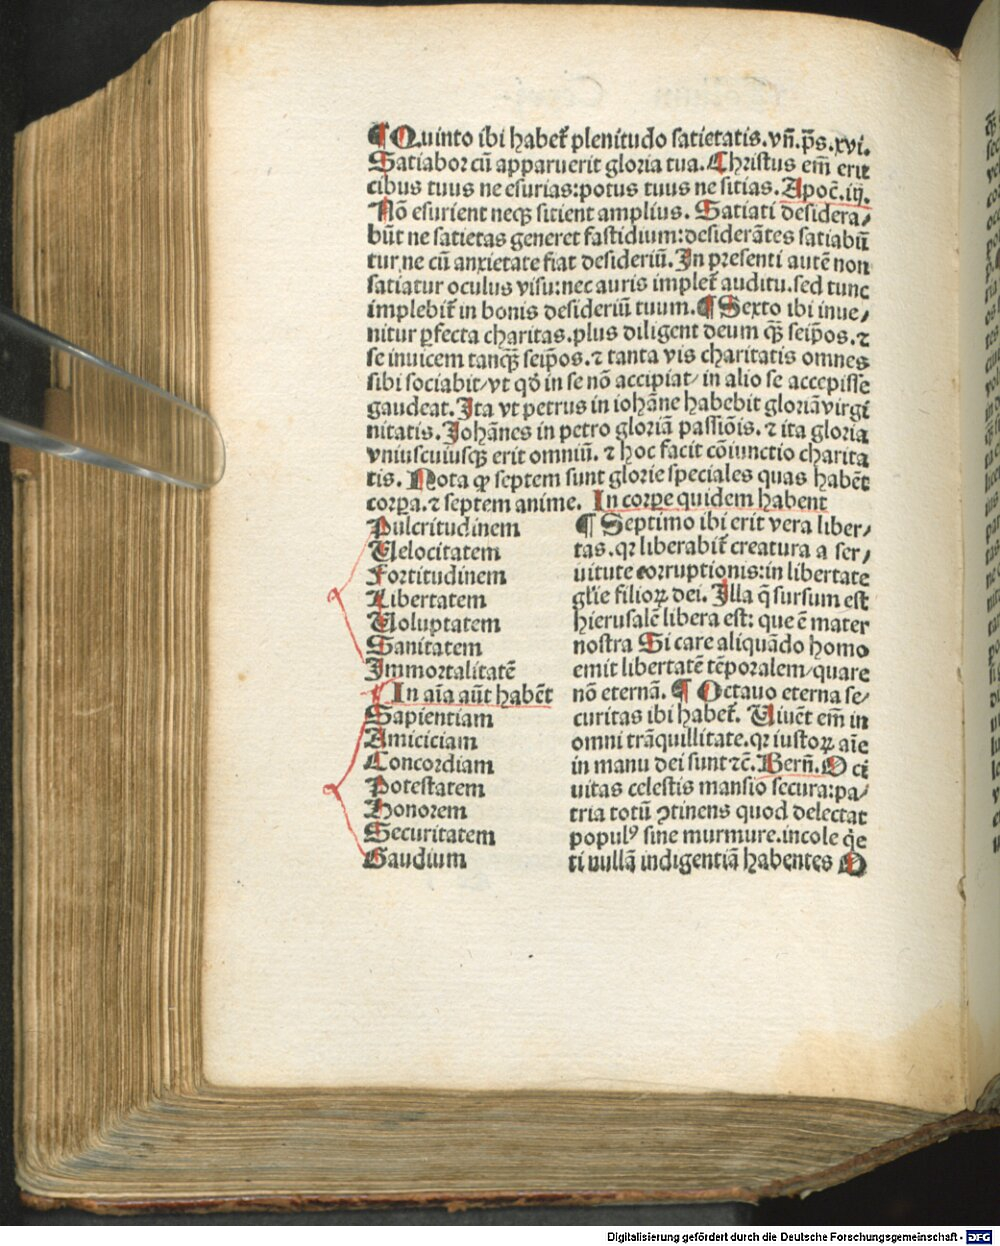 ¶ Quinto ibi habet᷑ plenitudo satietatis.vñ.p̃s.xvi.
Satiabor cū apparuerit gloria tua. Christus em̄ erit
cibus tuus ne esurias:potus tuus ne sitias. Apoc̄.iij.
Nō esurient neqꝫ sitient amplius. Satiati desidera⸗
būt ne satietas generet fastidium:desiderātes satiabū
tur,ne cū anxietate fiat desideriū. In presenti autē non
satiatur oculus visu:nec auris implet᷑ auditu.sed tunc
implebit᷑ in bonis desideriū tuum. ¶ Sexto ibi inue⸗
nitur ꝑfecta charitas.plus diligent deum qꝫ̄ seip̄os.⁊
se inuicem tanqꝫ̄ seip̄os.⁊ tanta vis charitatis omnes
sibi sociabit/vt qd̄ in se nō accipiat/in alio se accepisse
gaudeat. Ita vt petrus in iohāne habebit gloriā virgi
nitatis. Johānes in petro gloriā passiōis. ⁊ ita gloria
vniuscuiusqꝫ erit omniū. ⁊ hoc facit cōiunctio charita
tis. Nota ꝙ septem sunt glorie speciales quas habēt
corꝑa.⁊ septem anime. In corꝑe quidem habent
Pulcritudinem
Uelocitatem
Fortitudinem
Libertatem
Uoluptatem
Sanitatem
Immortalitatē
¶ In aīa aūt habēt
Sapientiam
Amiciciam
Concordiam
Potestatem
Honorem
Securitatem
Gaudium
¶ Septimo ibi erit vera liber⸗
tas.qꝛ liberabit᷑ creatura a ser⸗
uitute corruptionis:in libertate
gl̄ie filioꝝ dei. Illa q̄ sursum est
hierusalē libera est: que ē mater
nostra Si care aliquādo homo
emit libertatē tēporalem/quare
nō eternā. ¶ Octauo eterna se⸗
curitas ibi habet᷑. Uiuēt em̄ in
omni trāquillitate.qꝛ iustoꝝ aīe
in manu dei sunt ⁊c̄. Bern̄. O ci
uitas celestis mansio secura:pa⸗
tria totū ꝯtinens quod delectat
populꝰ sine murmure.incole q̇e
ti nullā indigentiā habentes O
Digitalisierung gefördert durch die Deutsche Forschungsgemeinschaft - DFG